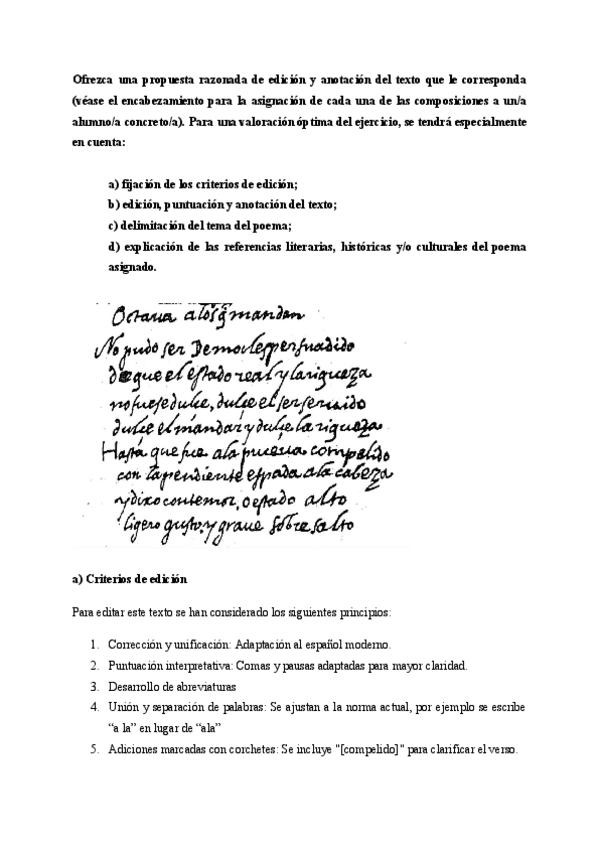 Ofrezca una propuesta razonada de edición y anotación del texto que le corresponda
(véase el encabezamiento para la asignación de cada una de las composiciones a un/a
alumno/a concreto/a). Para una valoración óptima del ejercicio, se tendrá especialmente
en cuenta:
a) fijación de los criterios de edición;
b) edición, puntuación y anotación del texto;
c) delimitación del tema del poema;
d) explicación de las referencias literarias, históricas y/o culturales del poema
asignado.
Octaua a los q̃ mandan
No pudo ser Democles persuadido
de que el estado real y la riqueza
no fuese dulce, dulce el ser seruido
dulce el mandar y dulce la riqueza
Hasta que fue a la prueua compelido
con la pendiente espada a la cabeza
y dixo con temor, o estado alto
ligero gusto, y graue sobresalto
a) Criterios de edición
Para editar este texto se han considerado los siguientes principios:
1. Corrección y unificación: Adaptación al español moderno.
2. Puntuación interpretativa: Comas y pausas adaptadas para mayor claridad.
3. Desarrollo de abreviaturas
4. Unión y separación de palabras: Se ajustan a la norma actual, por ejemplo se escribe
“a la” en lugar de “ala”
5. Adiciones marcadas con corchetes: Se incluye "[compelido]" para clarificar el verso.